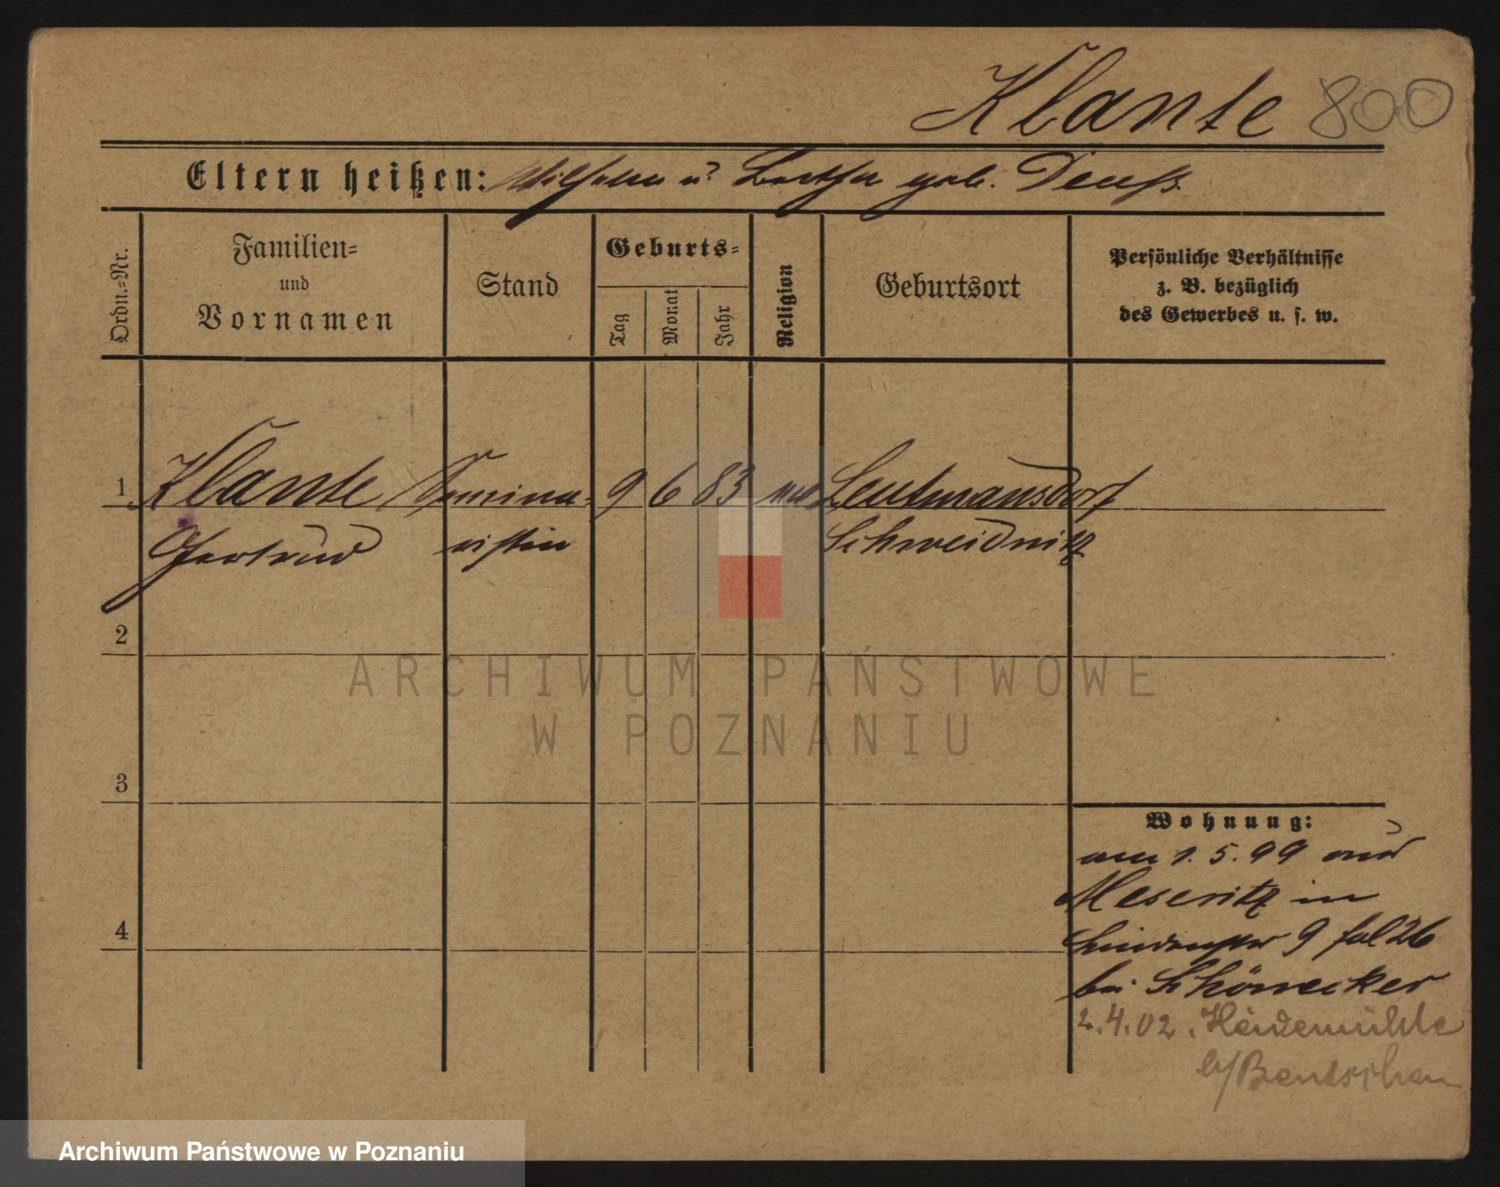 Klante 800
Eltern heißen: Wilhelm u. Bertha geb.
Ordn.-Nr.
Familien-
und
Vornamen
Stand
Geburts-
Tag
Monat
Jahr
Religion
Geburtsort
Persönliche Verhältnisse
z. B. bezüglich
des Gewerbes u. s. w.
1 Klante Semina- 9 6 83 Leutmansdorf
Gertrud ristin Schweidnitz
2
ARCHIWUM PAŃSTWOWE
W POZNANIU
3
Wohnung:
am 1. 5. 99 aus
Meseritz in
4
Lindenstr 9 fol 26
bei Schönecker
2.4.02. Heidemühle
b/Bentschen
Archiwum Państwowe w Poznaniu